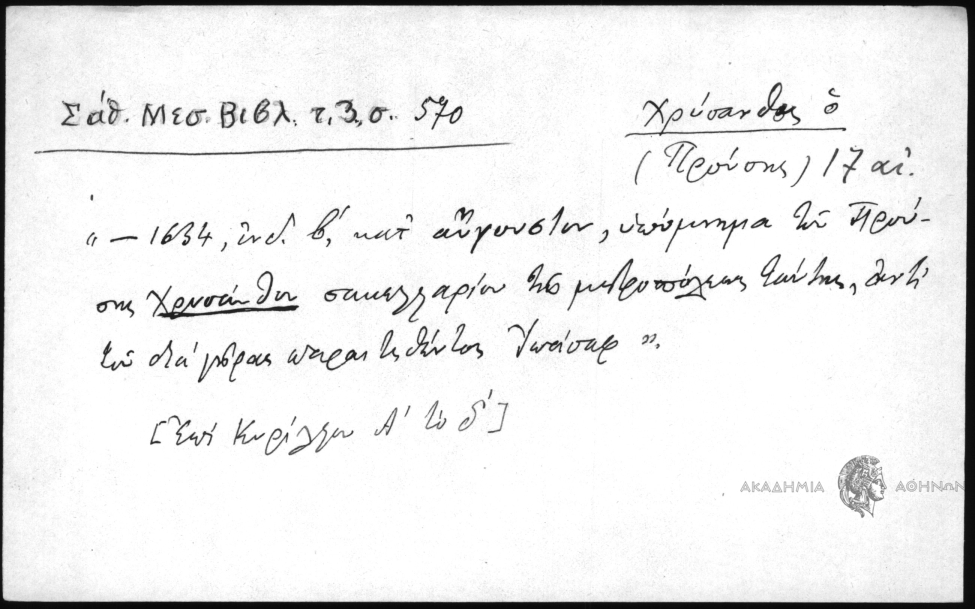 Σάθ. Μεσ. Βιβλ. τ. 3, σ. 570
Χρύσανθος ὁ
(Προύσης) 17 αἰ.
"— 1634, ἰνδ. β΄, κατ' αὔγουστον, ὑπόμνημα τοῦ Πρού-
σης Χρυσάνθου σακελλαρίου τῆς μητροπόλεως ταύτης, ἀντὶ
τοῦ διὰ γῆρας παραιτηθέντος Ἰωάσαφ".
[Ἐπὶ Κυρίλλου Α΄ τὸ δ΄]
ΑΚΑΔΗΜΙΑ ΑΘΗΝΩΝ